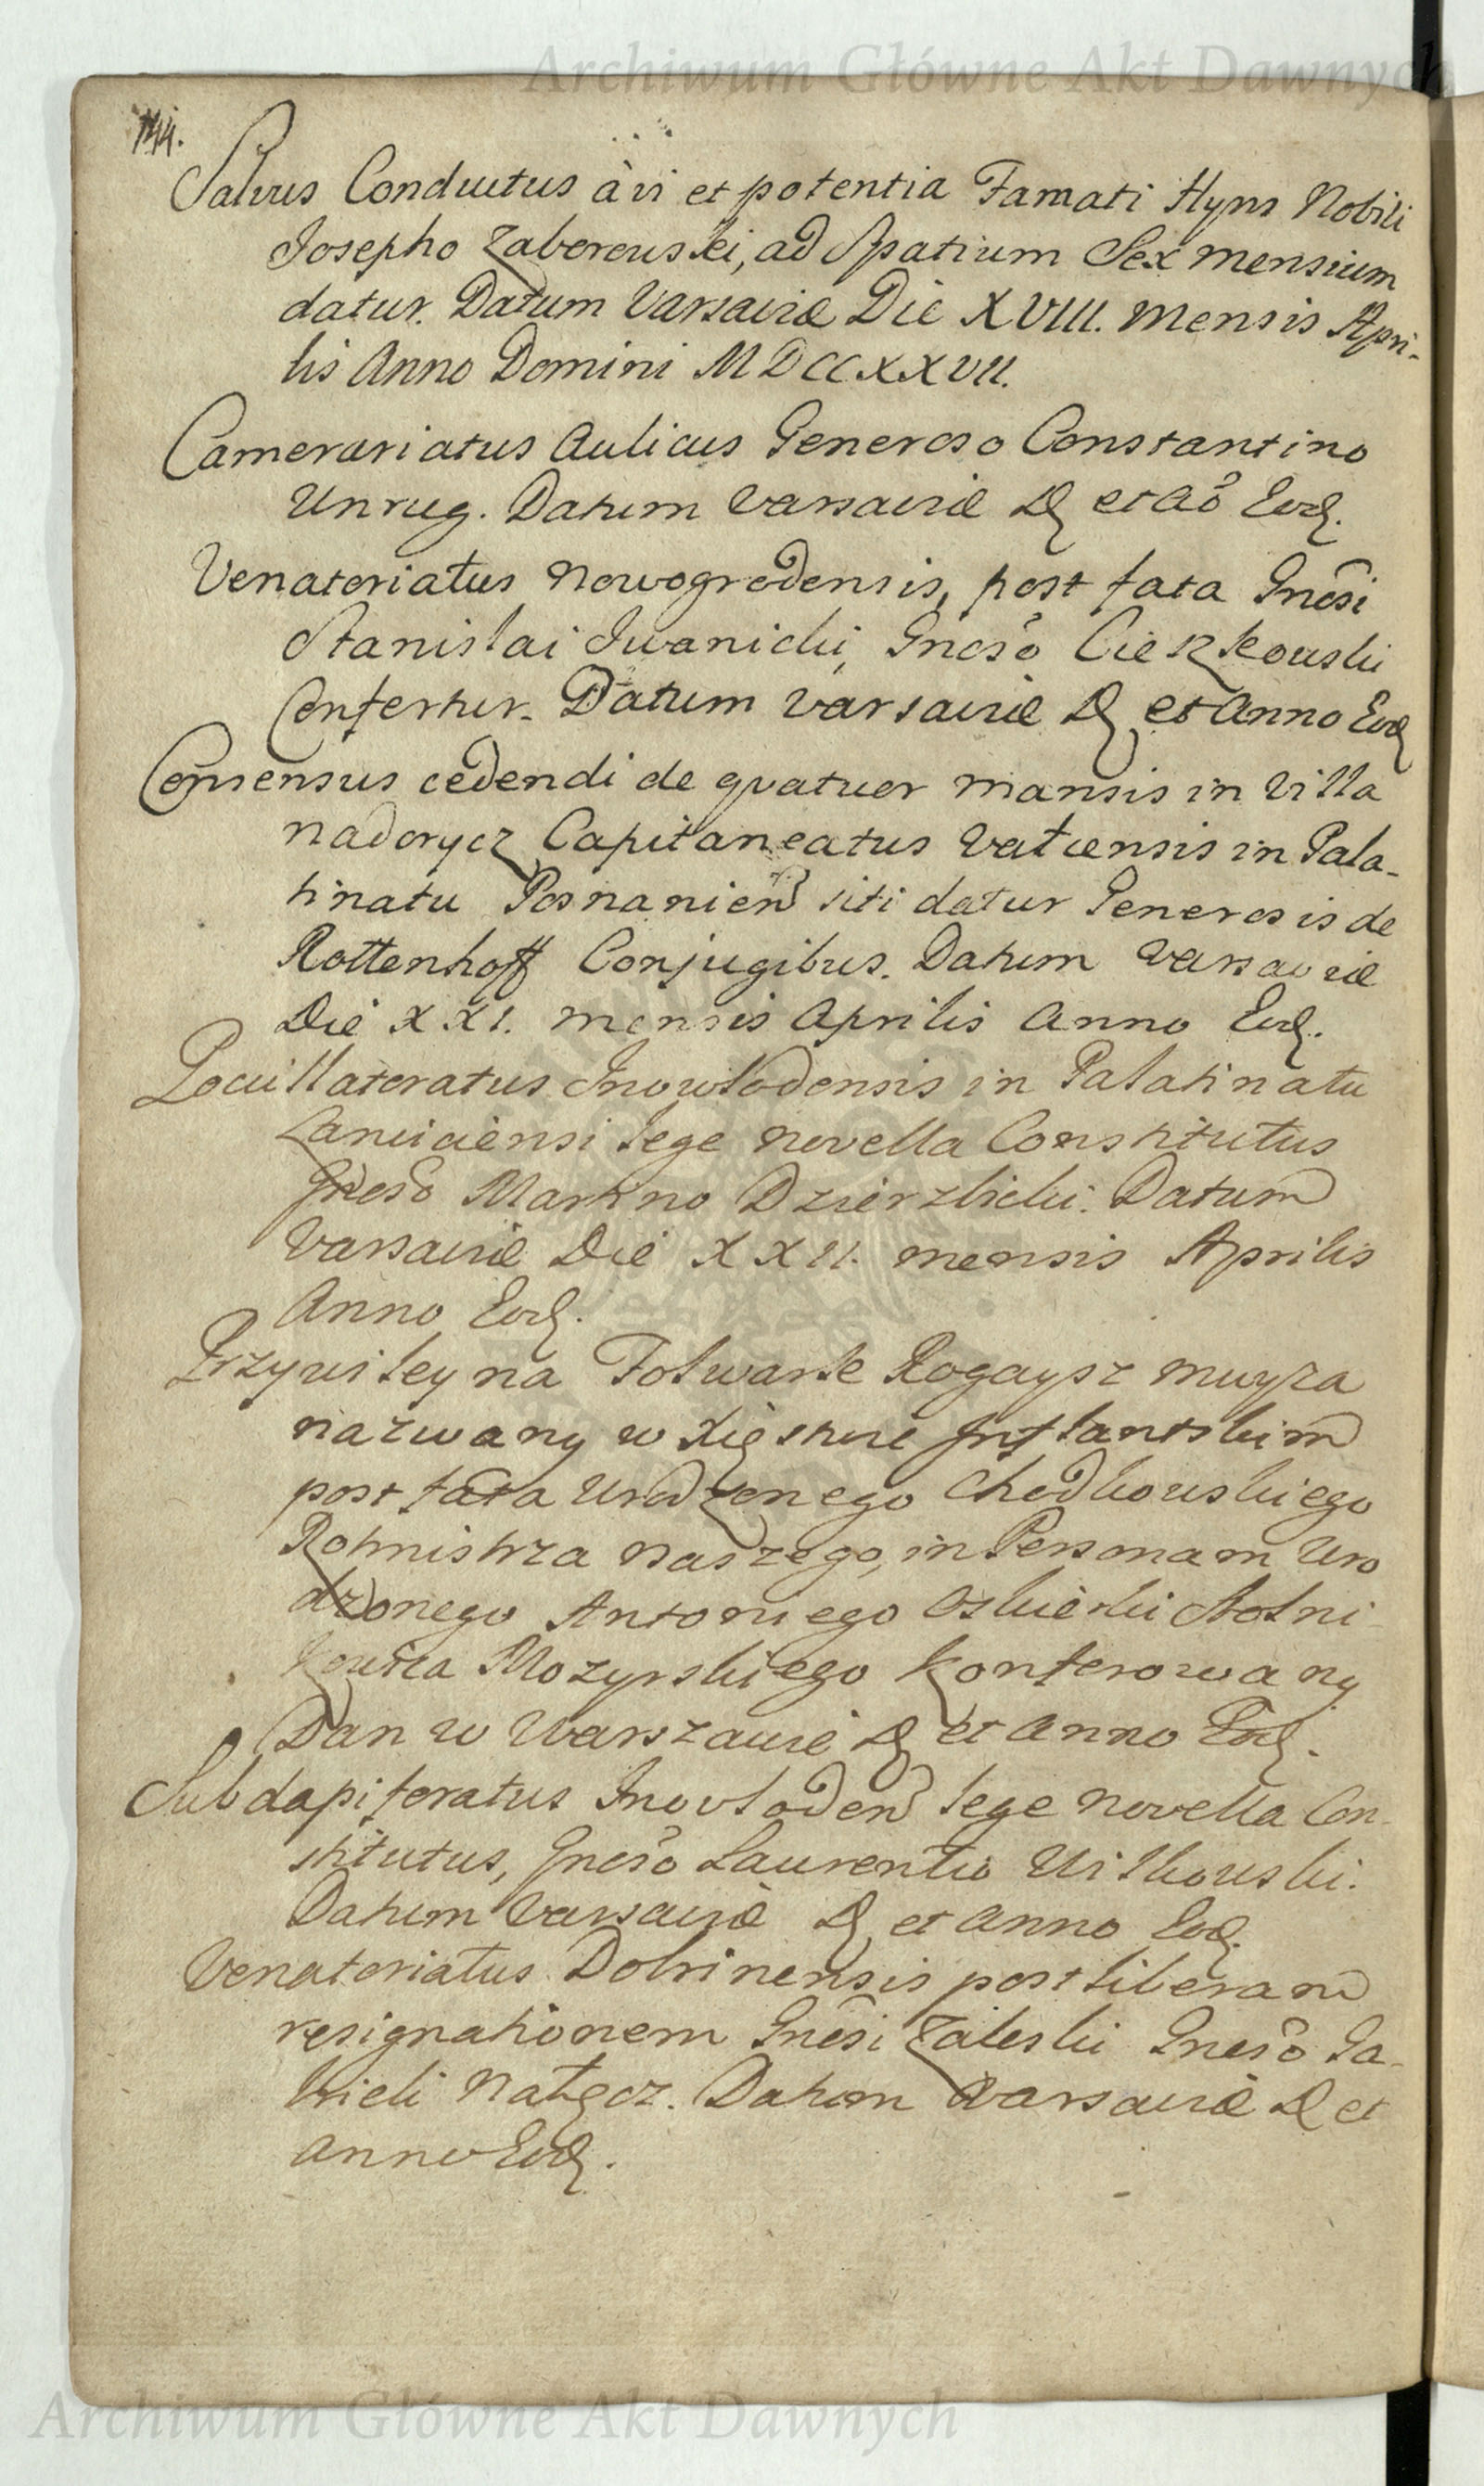 Archiwum Główne Akt Dawnych
144.
Salvus Conductus à vi et potentia Famati Hyns Nobili
Josepho Zaborowski, ad Spatium Sex mensium
datur. Datum Varsaviæ Die XVIII. mensis Apri-
lis Anno Domini MDCCXXVII.
Camerariatus Aulicus Generoso Constantino
Unrug. Datum Varsaviæ D. et Aõ Eod.
Venatoriatus Nowogrodensis, post fata Gnosi
Stanislai Iwanicki, Gnoso Cieszkowski
Confertur. Datum Varsaviæ D. et Anno Eod
Consensus cedendi de quatuor mansis in Villa
nadorycz Capitaneatus Valcensis in Pala-
tinatu Posnanien siti datur Generosis de
Rottenhoff Conjugibus. Datum Varsaviæ
Die XXI. mensis Aprilis Anno Eod.
Pocillatoratus Inowłodensis in Palatinatu
Lanciciensi lege novella Constitutus
Gnoso Martino Dzierzbicki. Datum
Varsaviæ Die XXII. mensis Aprilis
Anno Eod.
Przywiley na Folwark Rogaysz muyza
nazwany w Xięstwie Inflantskim
post fata Urodzonego Chodkowskiego
Rotmistrza naszego, in Personam Uro
dzonego Antoniego Oskierki Stolni
kowica Mozyrskiego konferowany
Dan w Warszawie D. et Anno Eod.
Subdapiferatus Inovlodен lege novella Con-
stitutus, Gnoso Laurentio Witkowski.
Datum Varsaviæ D. et Anno Eod.
Venatoriatus Dobrinensis post liberam
resignationem Gnosi Zaleski Gnoso Ga-
brieli Nałęcz. Datum Varsaviæ D et
Anno Eod.
Archiwum Główne Akt Dawnych